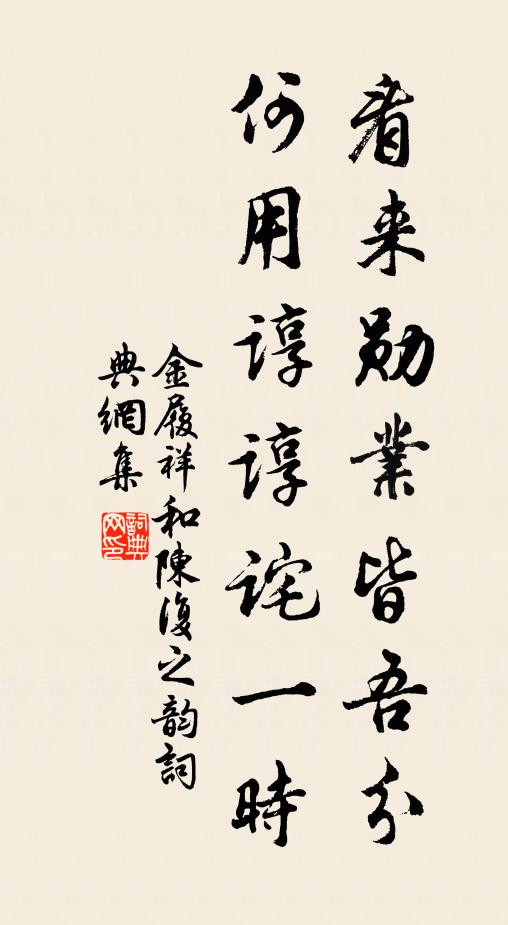 看来勛業皆吾分
何用諄諄詫一時
金履祥和陳復之韵詞
典網集
詞典网印